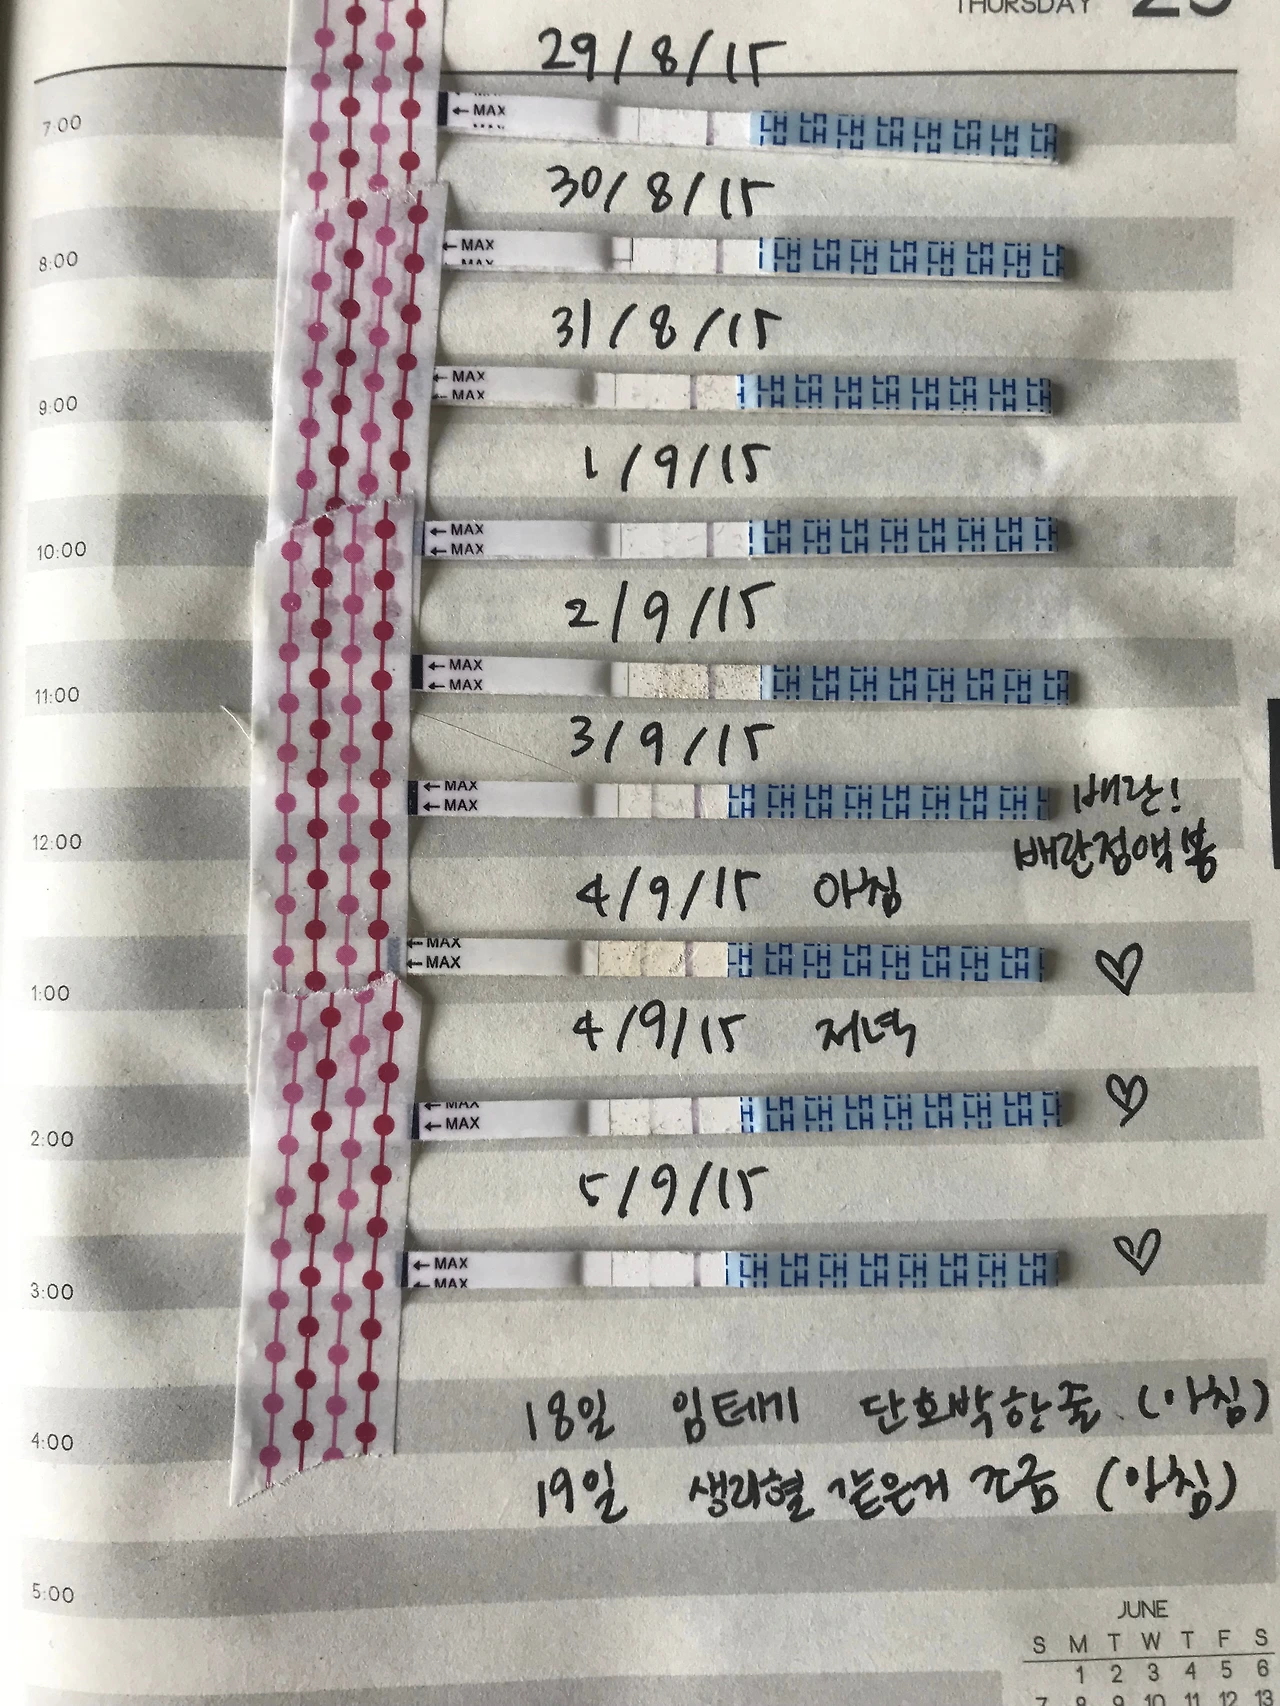 THURSDAY 25
29/8/15
7:00
← MAX
LH LH LH LH LH LH LH LH
30/8/15
8:00
← MAX
MAX
LH LH LH LH LH LH LH
31/8/15
9:00
← MAX
← MAX
LH LH LH LH LH LH LH LH
1/9/15
10:00
← MAX
← MAX
LH LH LH LH LH LH LH
2/9/15
11:00
← MAX
← MAX
LH LH LH LH LH LH LH
3/9/15
← MAX
← MAX
LH LH LH LH LH LH LH LH
배란!
12:00
배란점액봄
4/9/15 아침
← MAX
← MAX
LH LH LH LH LH LH LH LH
♡
1:00
4/9/15 저녁
← MAX
← MAX
LH LH LH LH LH LH LH
♡
2:00
5/9/15
← MAX
← MAX
LH LH LH LH LH LH LH LH
♡
3:00
18일 임테기 단호박한줄 (아침)
4:00
19일 생리혈 같은거 조금 (아침)
5:00
JUNE
S M T W T F S
1 2 3 4 5 6
7 8 9 10 11 12 13